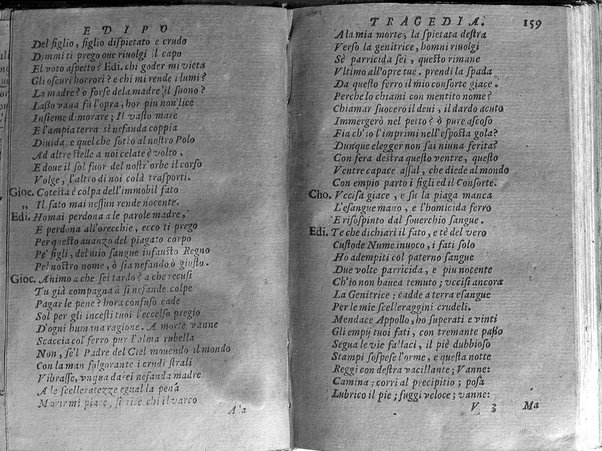 EDIPO
Del figlio, figlio dispietato e crudo
Dimmi ti prego oue riuolgi il capo
El voto aspetto? Edi. chi goder mi vieta
Gli oscuri horrori? e chi mi rende i lumi?
La madre? o forse dela madre il suono?
Lasso vana fu l'opra, hor piu non lice
Insieme dimorare; Il vasto mare
E l'ampia terra sì nefanda coppia
Diuida, e quel che sotto al nostro Polo
Ad altre stelle a noi celate è volto,
E doue il sol fuor del nostr'orbe il corso
Volge, l'altro di noi colà trasporti.
Gioc. Cotesta è colpa dell'immobil fato
„ Il fato mai nessun rende nocente.
Edi. Homai perdona a le parole madre,
E perdona all'orecchie, ecco ti prego
Per questo auanzo del piagato corpo
Pe' figli, del mio sangue infausto Regno
Pel nostro nome, ò sia nefando ò giusto.
Gioc. Animo a che sei tardo? a che recusi
Tu già compagna a sì nefande colpe
Pagar le pene? hora confuso cade
Sol per gli incesti tuoi l'eccelso pregio
D'ogni humana ragione. A morte vanne
Scaccia col ferro pur l'alma rubella
Non, se'l Padre del Ciel mouendo il mondo
Con la man fulgorante i crudi strali
Vibrasse, vnqua darei nefanda madre
A le scelleratezze egual la pena
Morir mi piace, si
A la
TRAGEDIA. 159
A la mia morte; la spietata destra
Verso la genitrice, homai riuolgi
Se parricida sei, questo rimane
Vltimo all'opre tue. prendi la spada
Da questo ferro il mio consorte giace.
Perche lo chiami con mentito nome?
Chiamar suocero il deui, il dardo acuto
Immergerò nel petto? ò pure ascoso
Fia ch'io l'imprimi nell'esposta gola?
Dunque elegger non sai niuna ferita?
Con fera destra questo ventre, questo
Ventre capace assai, che diede al mondo
Con empio parto i figli ed il Consorte.
Cho. Vccisa giace, e su la piaga manca
L'esangue mano, e l'homicida ferro
E risospinto dal souerchio sangue.
Edi. Te che dichiari il fato, e tè del vero
Custode Nume inuoco, i fati solo
Ho adempiti col paterno sangue
Due volte parricida, e piu nocente
Ch'io non hauea temuto; vccisi ancora
La Genitrice; cadde a terra esangue
Per le mie scelleraggini crudeli.
Mendace Appollo, ho superati e vinti
Gli empij tuoi fati, con tremante passo
Segue le vie fallaci, il piè dubbioso
Stampi sospese l'orme, e questa notte
Reggi con destra vacillante; Vanne:
Camina; corri al precipitio; posa
Lubrico il pie; fuggi veloce; vanne:
V 3 Ma